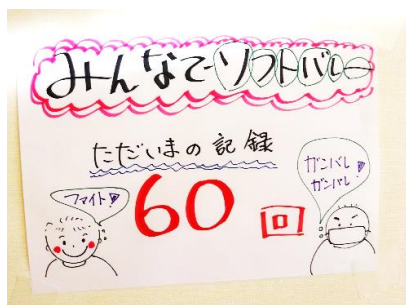 みんなでソフトバレー
ただいまの記録
ファイト
60回
ガンバレ
ガンバレ